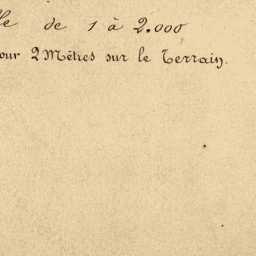 de 1 à 2.000
our 2 Mètres sur le Terrain.